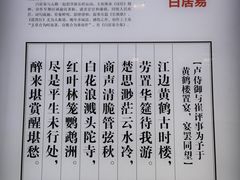 白居易
【卢侍御与崔评事为予于
黄鹤楼置宴,宴罢同望】
江边黄鹤古时楼,
劳置华筵待我游。
楚思渺茫云水冷,
商声清脆管弦秋。
白花浪溅头陀寺,
红叶林笼鹦鹉洲。
尽是平生未行处,
醉来堪赏醒堪愁。